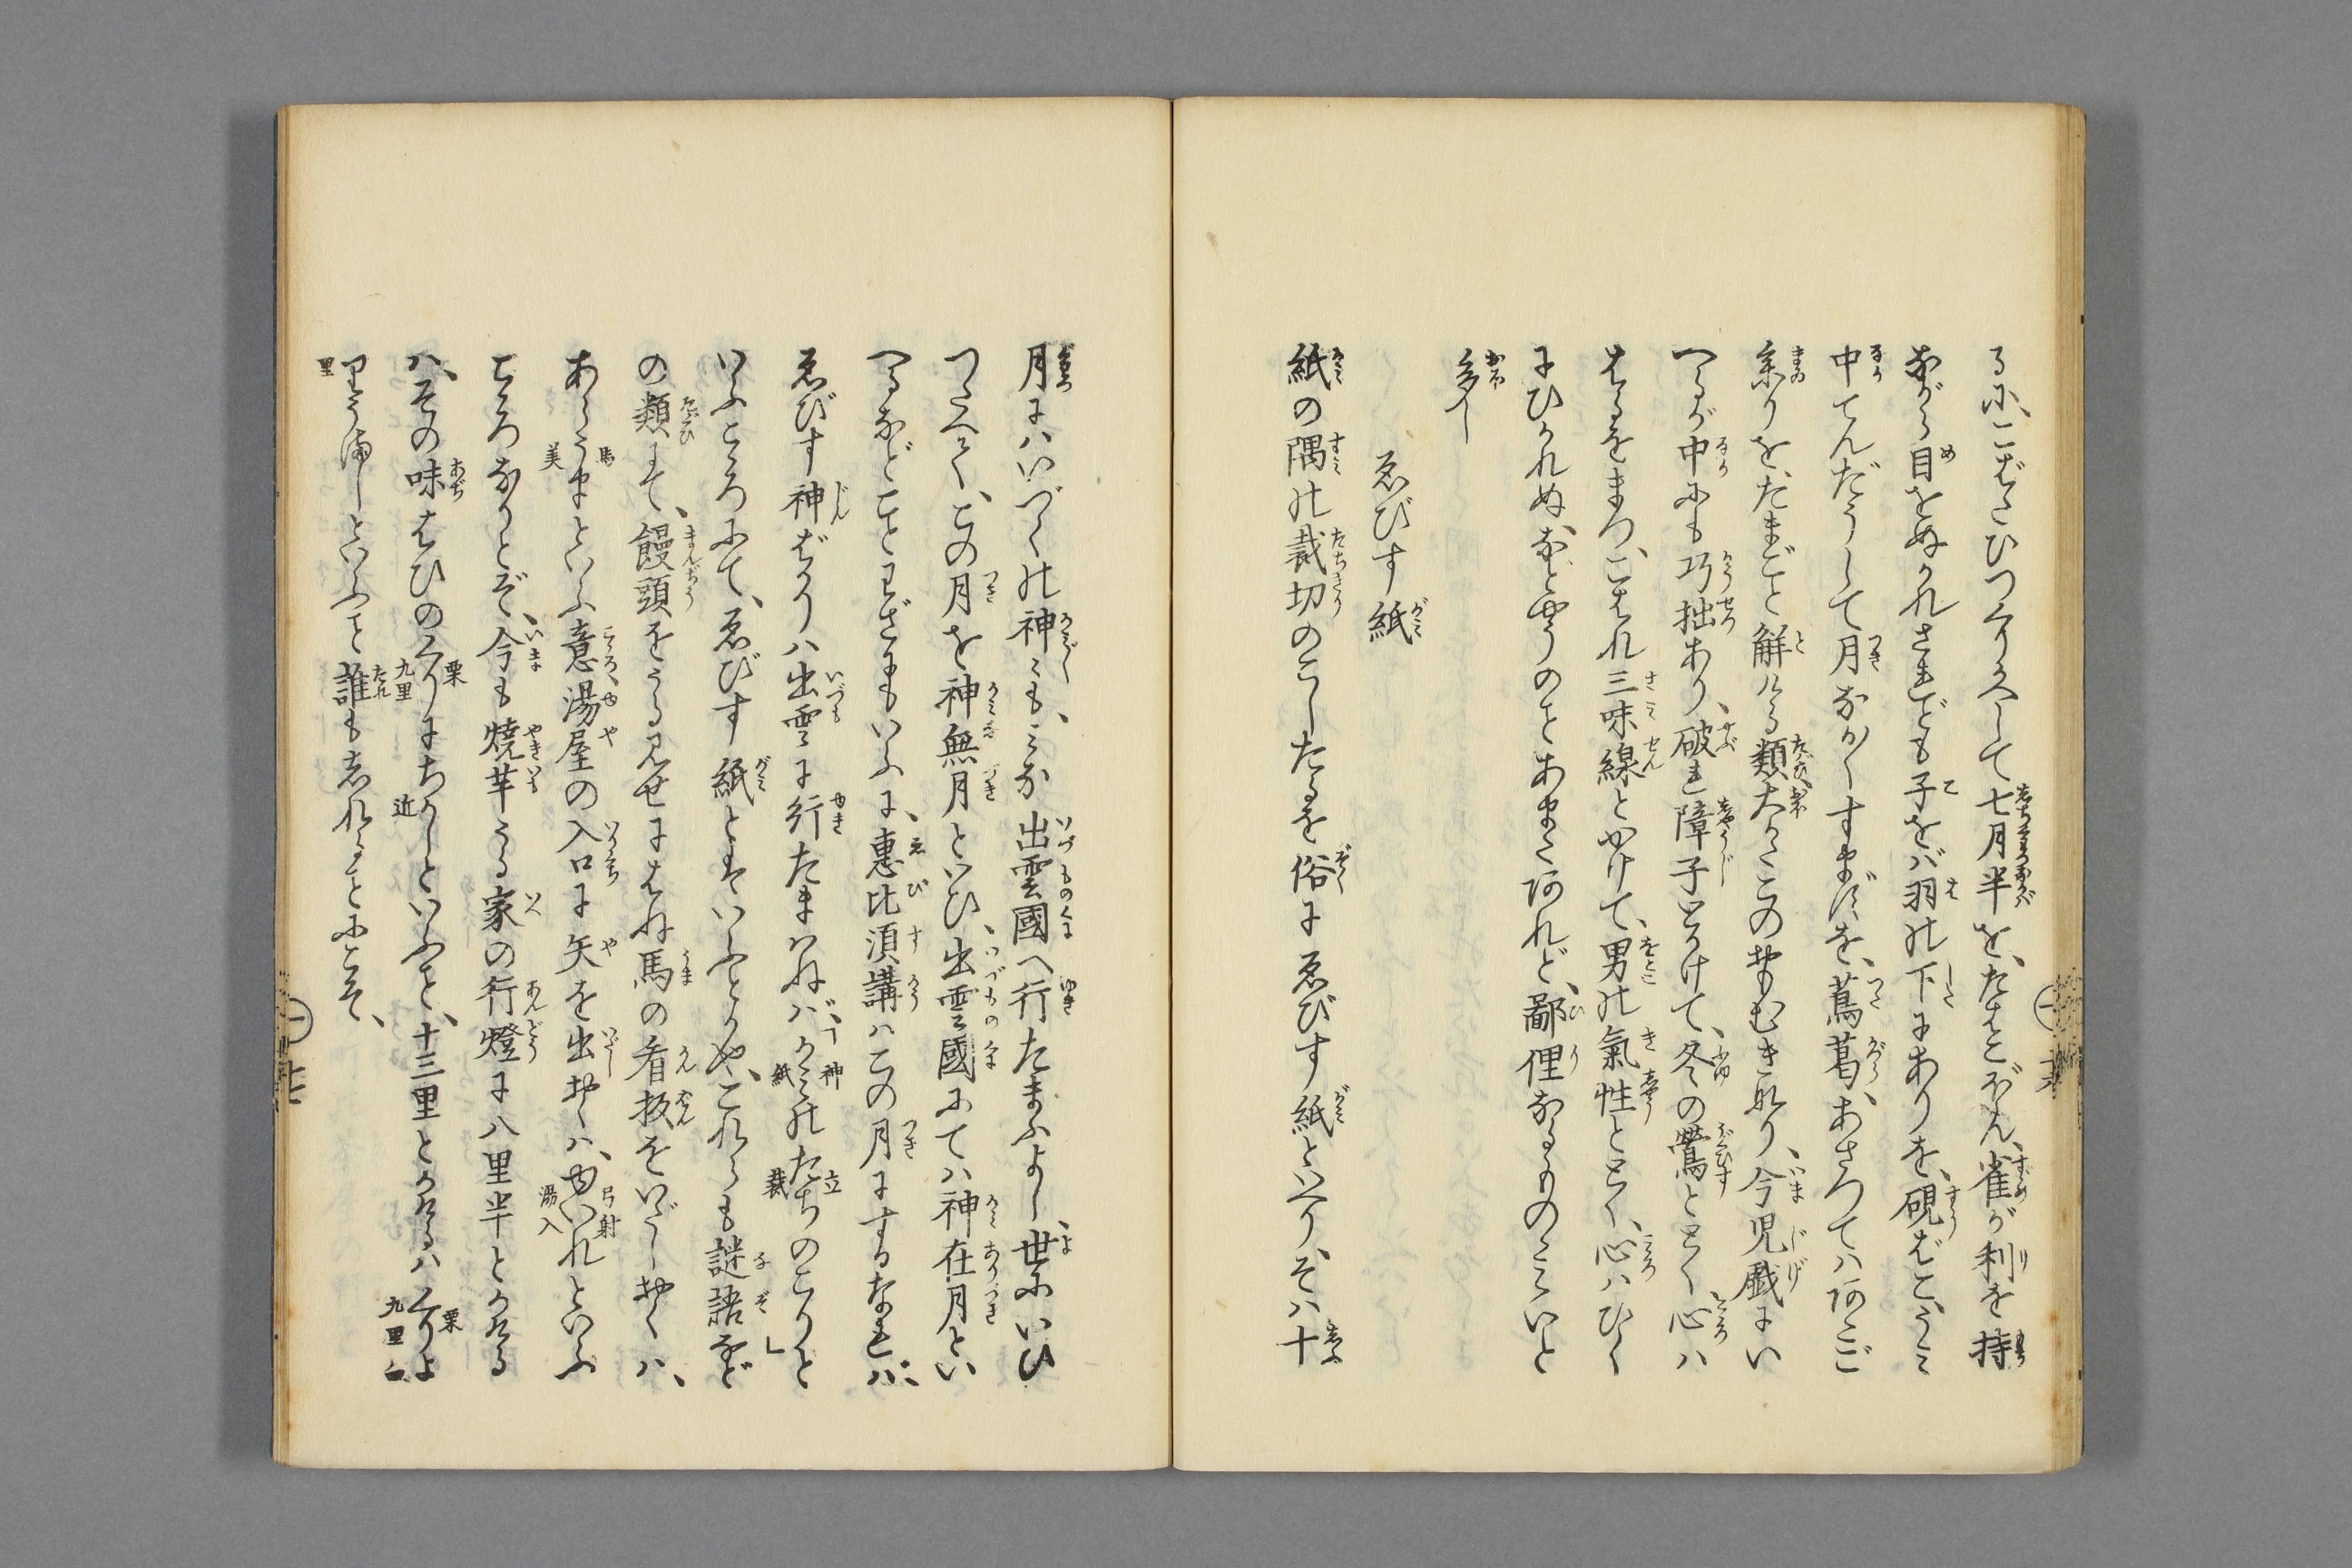 るに、こばこひつくりかへして七月半を、たばこぼん、雀が利を持
ながら目をぬかれされども子をば羽の下にありを、硯ばこ、うみ
中てんだうして月なかくすまずを、蔦葛、あさつては
余りを、たまごと解ける類大かたこのおもむきなり、今児戯にい
へるが中にも巧拙あり、破れ障子とかけて、冬の鶯ととく心は
はるをまつ、こはれ三味線とかけて、男の氣性ととく、心はひく
にひかれぬなどやうのことあまたあれど、鄙俚なるもののみいと
多し
ゑびす紙
紙の隅の裁切のこしたるを俗にゑびす紙といへり、そは十
月にはいづくの神々も、みな出雲國へ行たまふよし、世にいひ
つたへて、この月を神無月といひ、出雲國にては神在月とい
へるなどことわざにもいふに、惠比須講はこの月にするなれば、
ゑびす神ばかりは出雲に行たまはねば、かみのたちのこりと
いふこころにて、ゑびす紙とはいふとかや、これらも謎語など
の類にて、饅頭をうる見せにはね馬の看板をいだしおくは、
あらうまといふ意、湯屋の入口に矢を出しおくは、ゆいれといふ
こころなりとぞ、今も焼芋うる家の行燈に八里半とかける
は、その味はひのくりにちかしといふこと、十三里とかけるはくりよ
りうましといふこと誰もしれることにこそ、